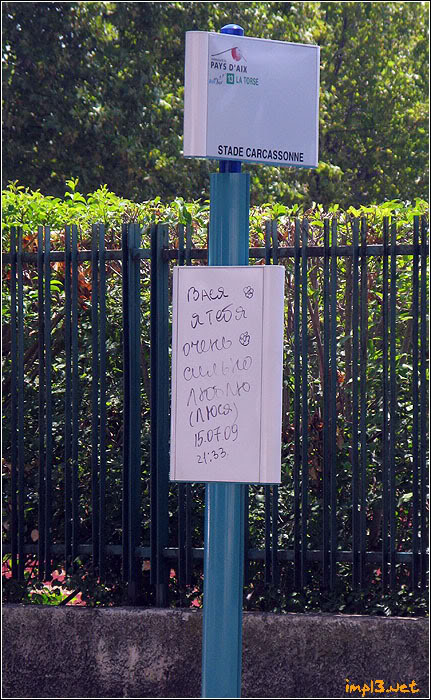 PAYS D'AIX
13 LA TORSE
STADE CARCASSONNE
ВАСЯ
Я ТЕБЯ
ОЧЕНЬ
СИЛЬНО
ЛЮБЛЮ
(ЛЮСЯ)
15.07.09
21:33.
impl3.net